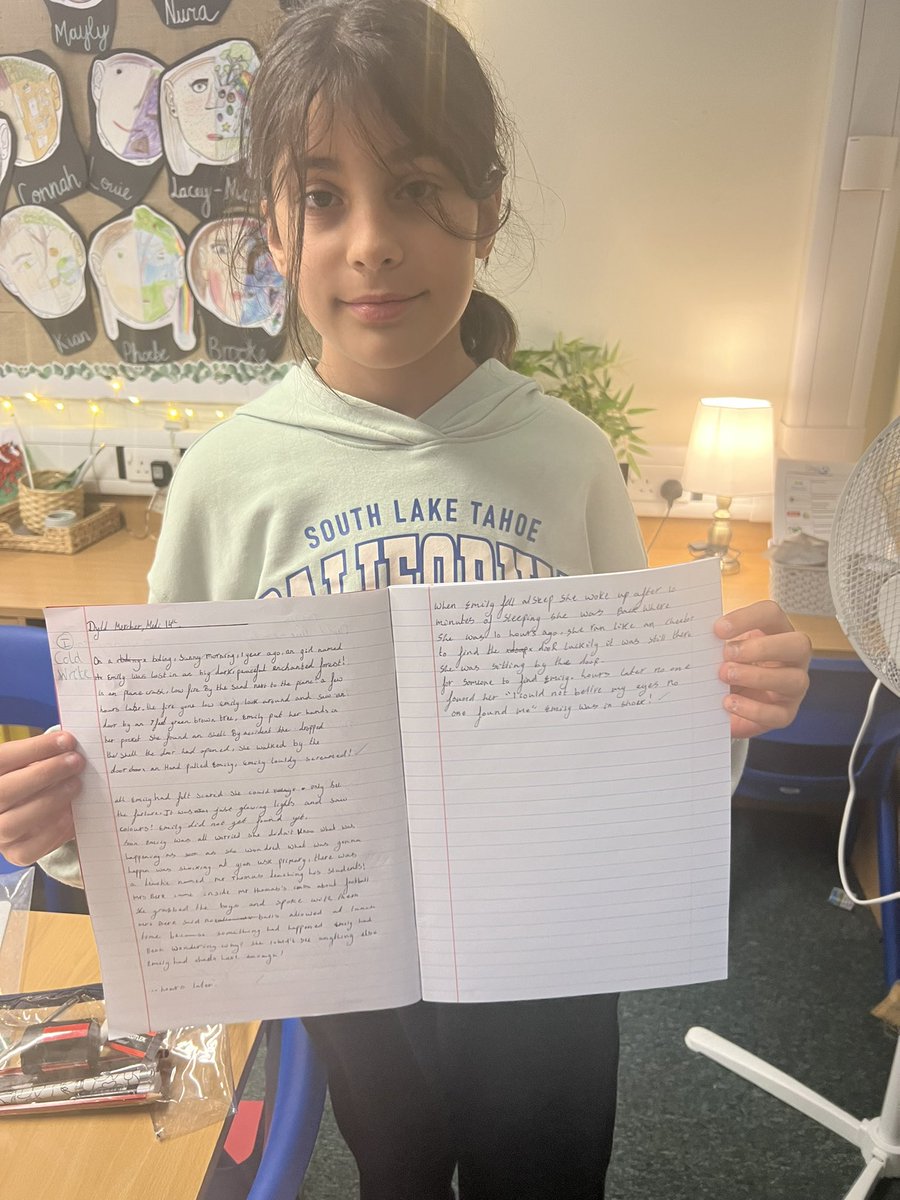 Mayly
Nura
Connah
Louie
Lacey-M
Kian
Phoebe
Brooke
SOUTH LAKE TAHOE
CALIFORNIA
Dydd Mercher, Medi 14
I
Cold
Write
On a boiling, sunny morning, 1 year ago, an girl named
Emily was lost in an big dark peaceful enchanted forest!
in an plane crash, low fire By the sand next to the plane! a few
hours later the fire gone low Emily look around and saw an
door by an 7 foot green brown tree, Emily put her hands in
her pocket she found an shell By accident she dropped
the shell the door had opened, she walked by the
door an Hand pulled Emily, Emily loudly screamed!
all Emily had felt scared she could only see
the furture. It was just glowing lights and saw
colours! Emily did not get found yet.
Emily was all worried she didn't know what was
happening as soon as she wondred what was gonna
happen was shocking at primary, there was
a named mr Thomas teaching his students!
Mrs Bere came inside mr Thomas's room about football
she grabbed the boys and spoke with them
Mrs Bere said no balls allowed at lunch
time because something had happened Emily had
Been wondering why? she couldn't see anything else
Emily had enough!
hours later.
When Emily fell alseep she woke up after 10
minutes of sleeping she was Back Where
she was 10 hours ago, she ran like an cheater
to find the door luckily it was still there
she was sitting by the door
for someone to find Emily. hours later no one
found her "I could not belive my eyes no
one found me" Emily was in shock!